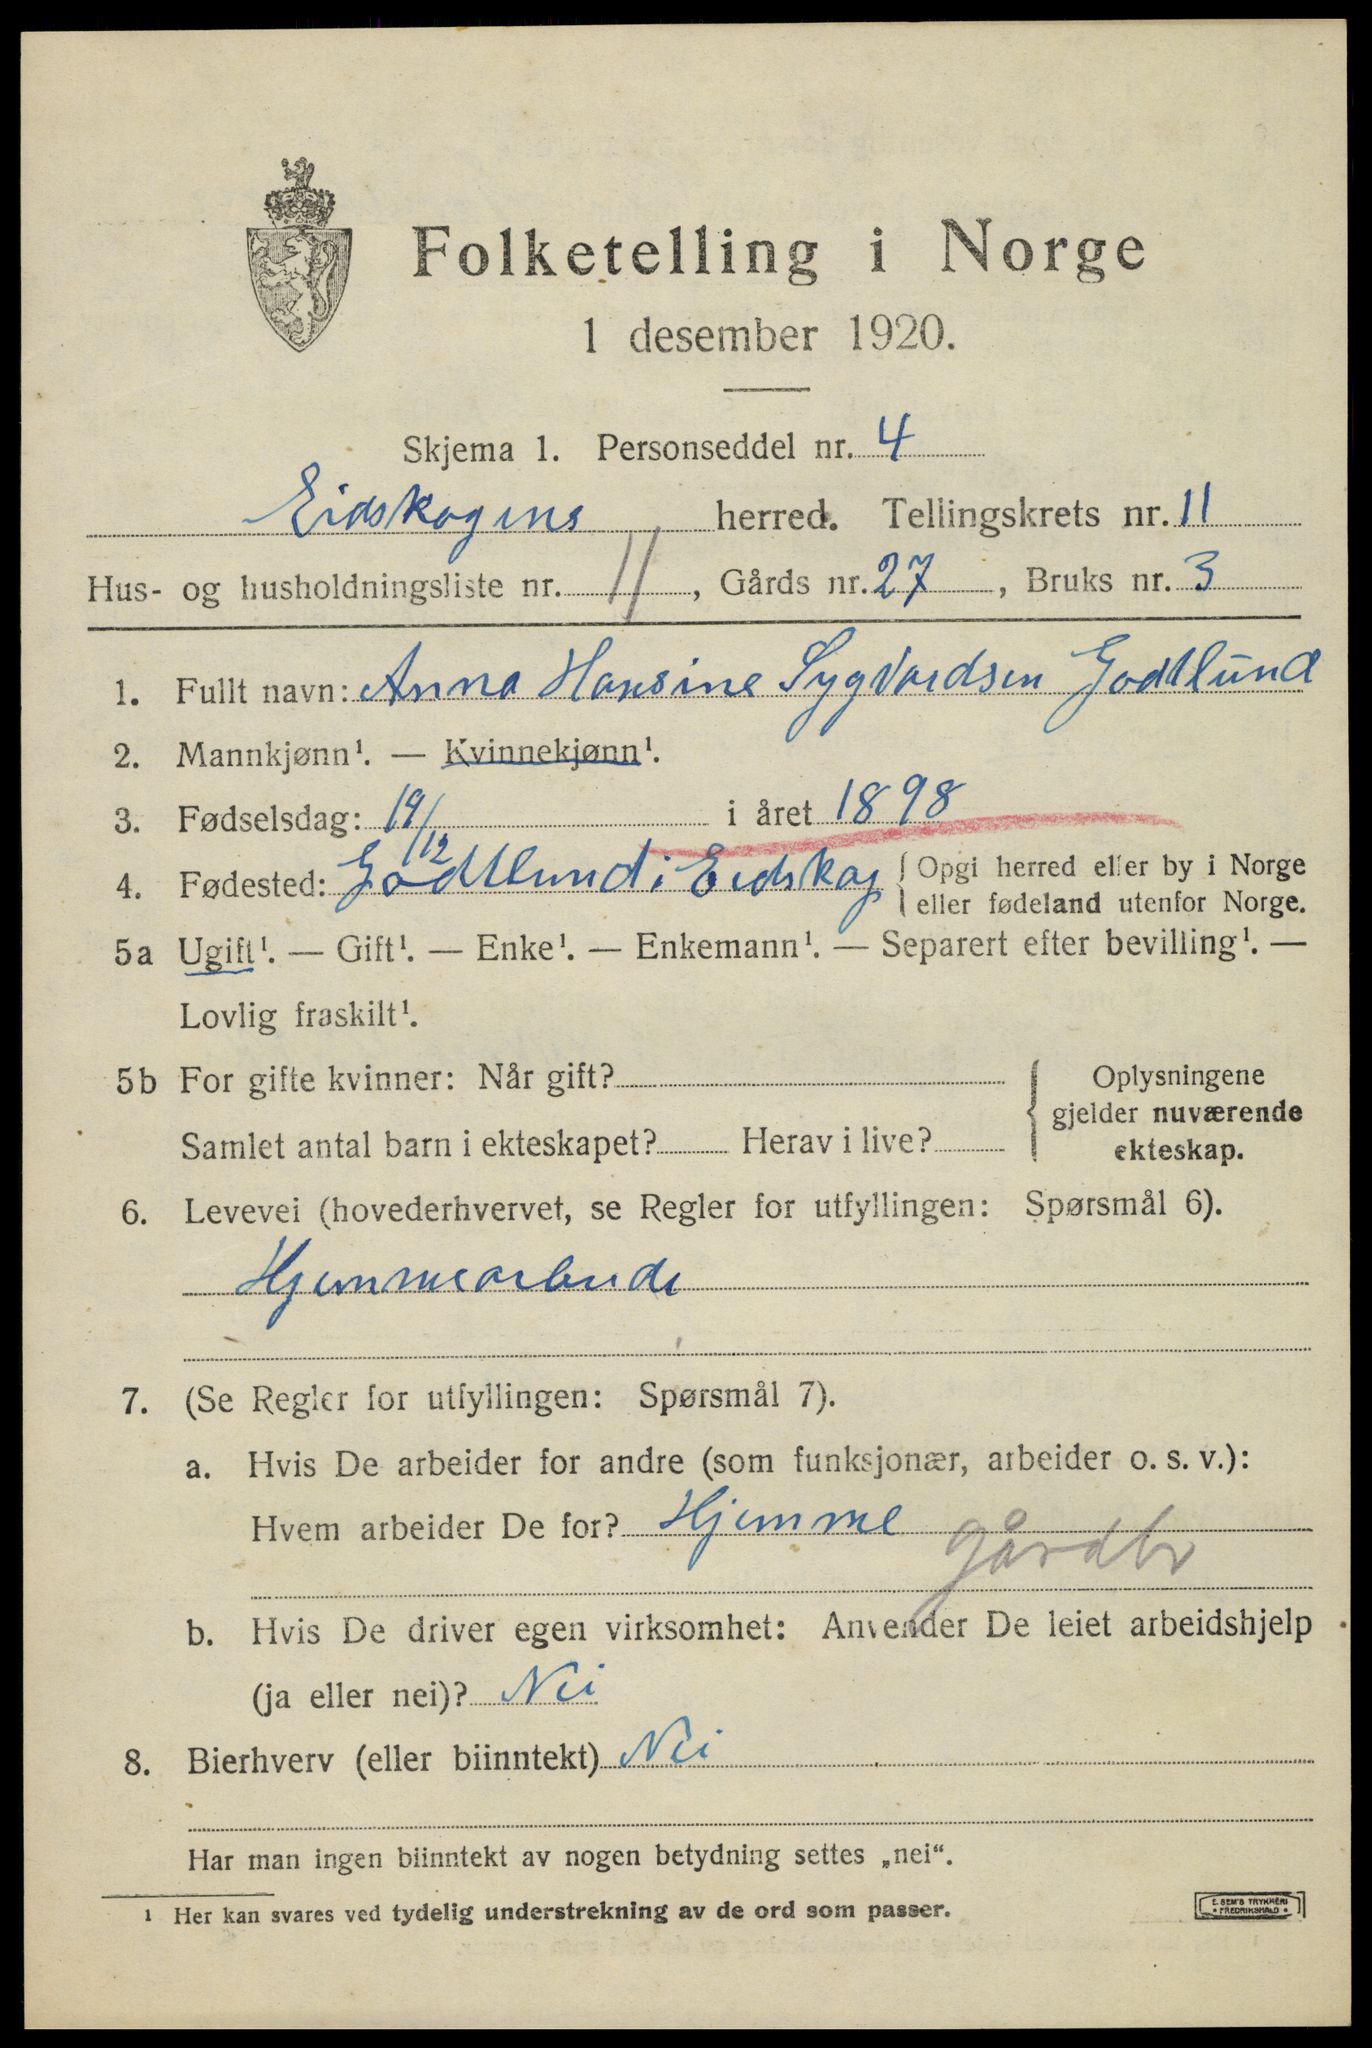 Folketelling i Norge
1 desember 1920.
Skjema 1. Personseddel nr. 4
Eidskogens herred. Tellingskrets nr. 11
Hus- og husholdningsliste nr. 11, Gårds nr. 27, Bruks nr. 3
1. Fullt navn: Anna Hansine Sygvardsen Godtlund
2. Mannkjønn¹. — Kvinnekjønn¹.
3. Fødselsdag: 19/12 i året 1898
4. Fødested: Godtlund i Eidskog { Opgi herred eller by i Norge
eller fødeland utenfor Norge.
5a Ugift¹. — Gift¹. — Enke¹. — Enkemann¹. — Separert efter bevilling¹. —
Lovlig fraskilt¹.
5b For gifte kvinner: Når gift? { Oplysningene
gjelder nuværende
Samlet antal barn i ekteskapet? Herav i live?
ekteskap.
6. Levevei (hovederhvervet, se Regler for utfyllingen: Spørsmål 6).
Hjemmearbeide
7. (Se Regler for utfyllingen: Spørsmål 7).
a. Hvis De arbeider for andre (som funksjonær, arbeider o. s. v.):
Hvem arbeider De for? Hjemme gårdbr
b. Hvis De driver egen virksomhet: Anvender De leiet arbeidshjelp
(ja eller nei)? Nei
8. Bierhverv (eller biinntekt) Nei
Har man ingen biinntekt av nogen betydning settes „nei“.
¹ Her kan svares ved tydelig understrekning av de ord som passer.
E. SEM'S TRYKKERI
• FREDRIKSHALD •